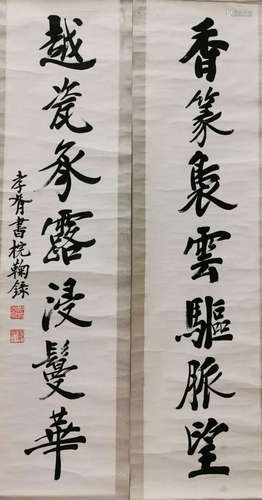 香篆裊雲驅脈望
越瓷承露浸鬘華
孝胥書梡鞠錄